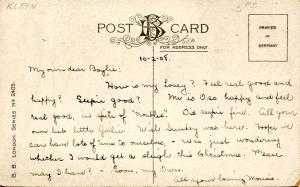 KLEIN
POST B CARD
FOR ADDRESS ONLY
PRINTED IN GERMANY
B. B. LONDON SERIES No 2405.
10-2-08.
My own dear
How is my ? Feel real good and
happy? good? Me is so happy and feel
real good, in spite of " ". fine. All your
own little girlie. Wish Sunday was here. Hope we
can have lots of time to ourselves. - Was just wondering
whether I would get a sleigh this Christmas. Please
may I have? - Soon, my Own.
All your loving